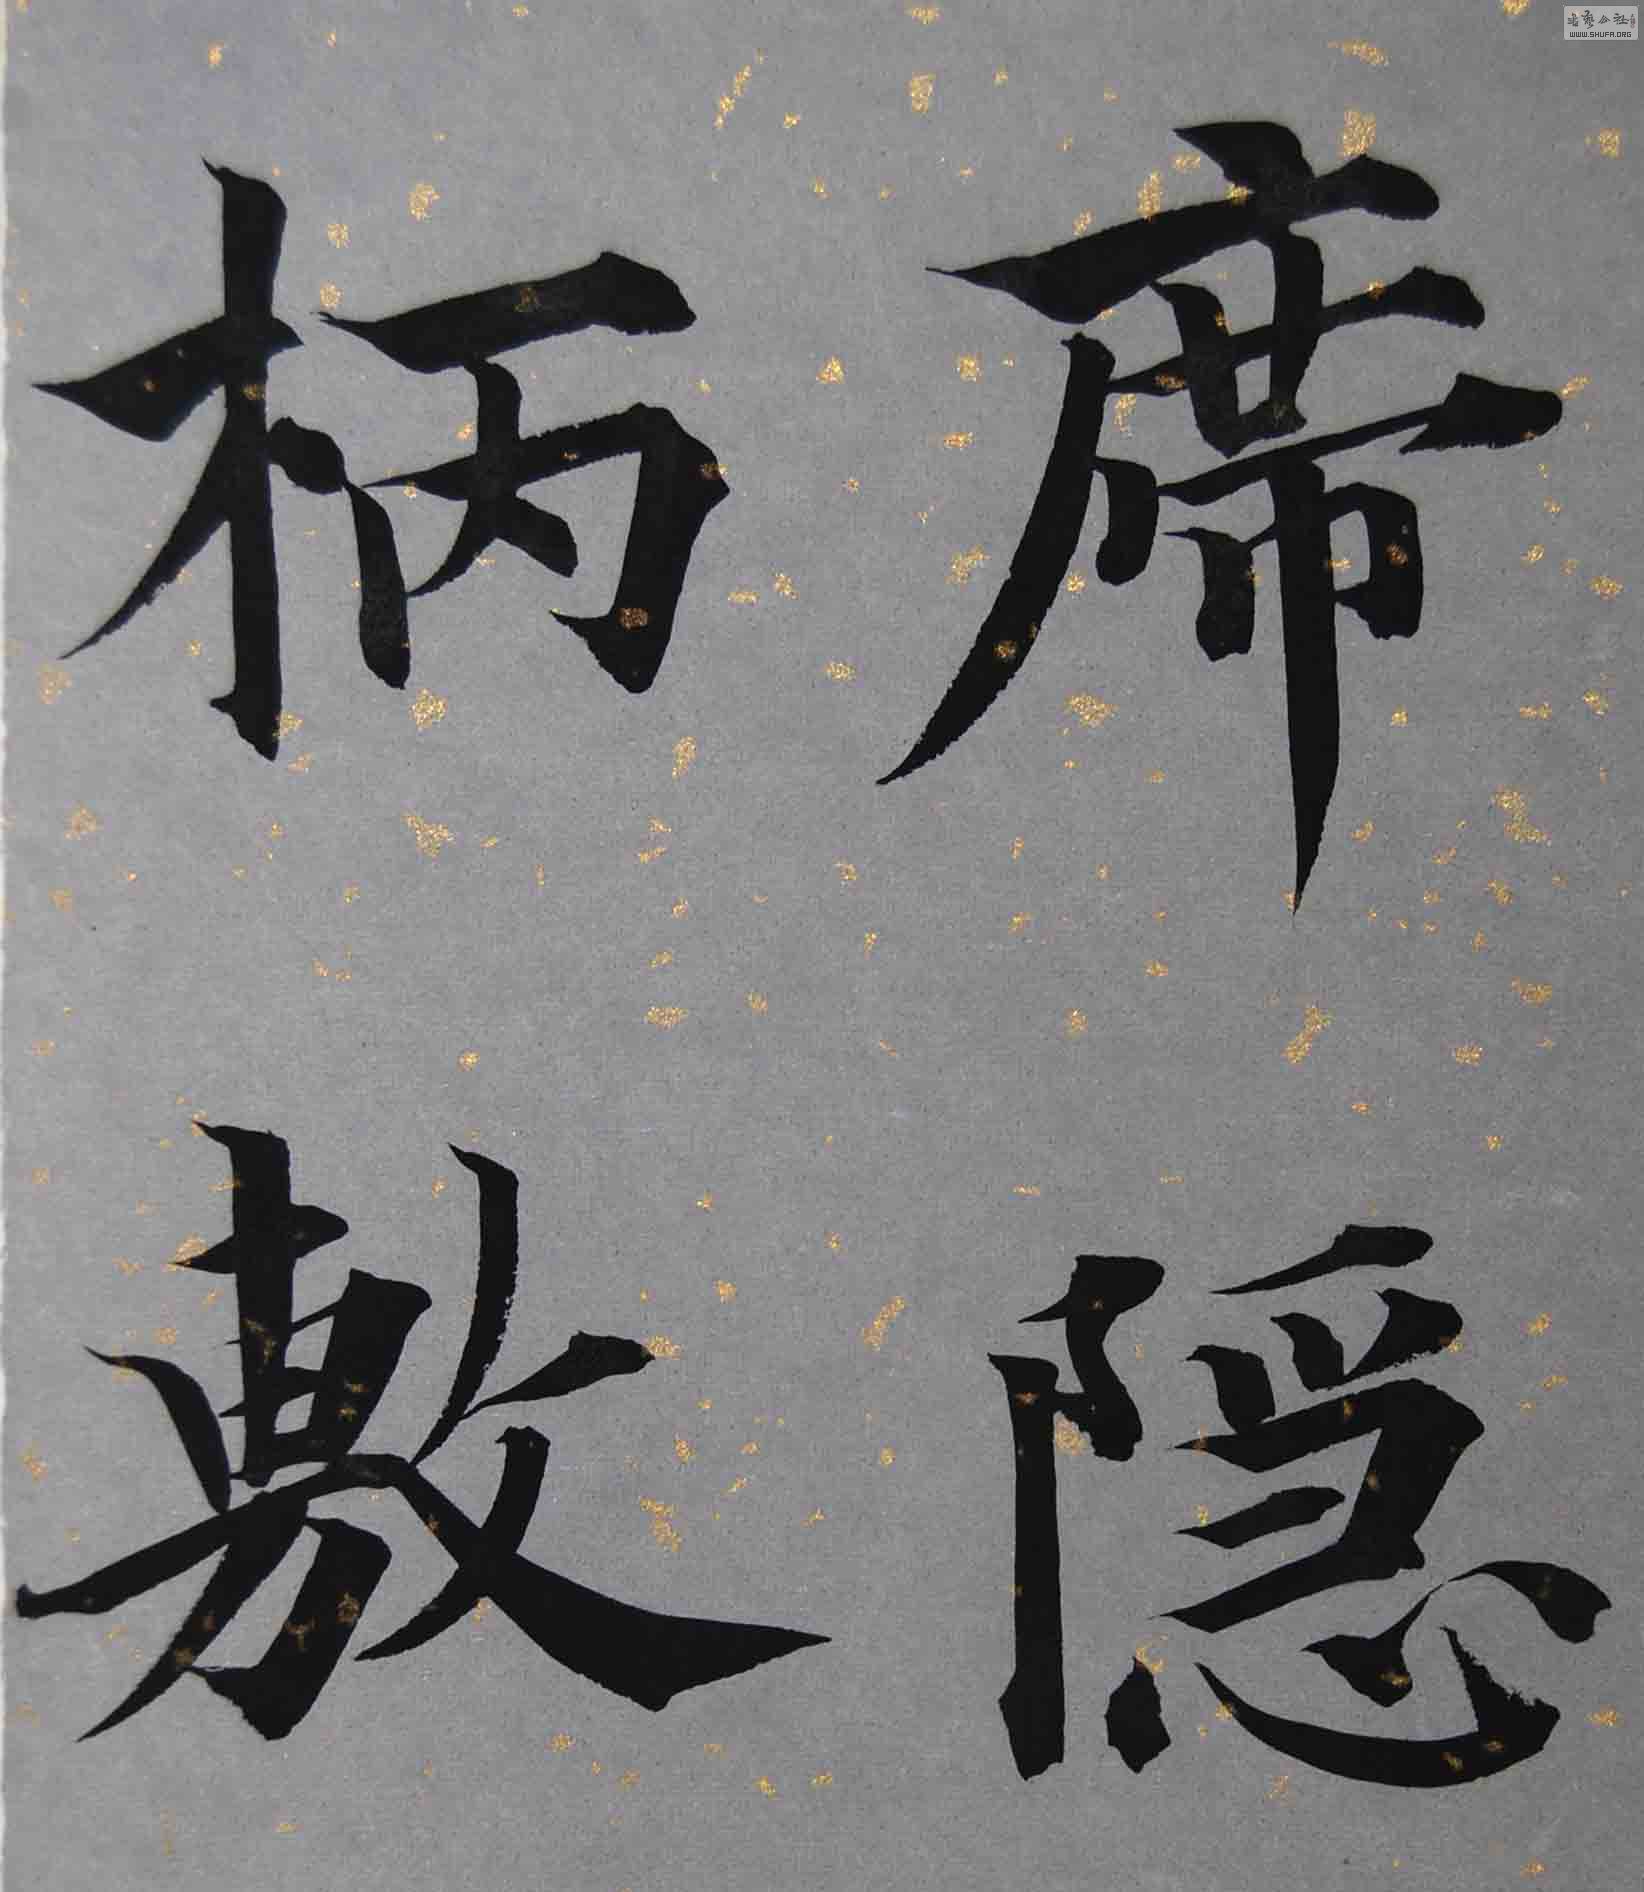 席隠
柄敷
书艺公社
WWW.SHUFA.ORG